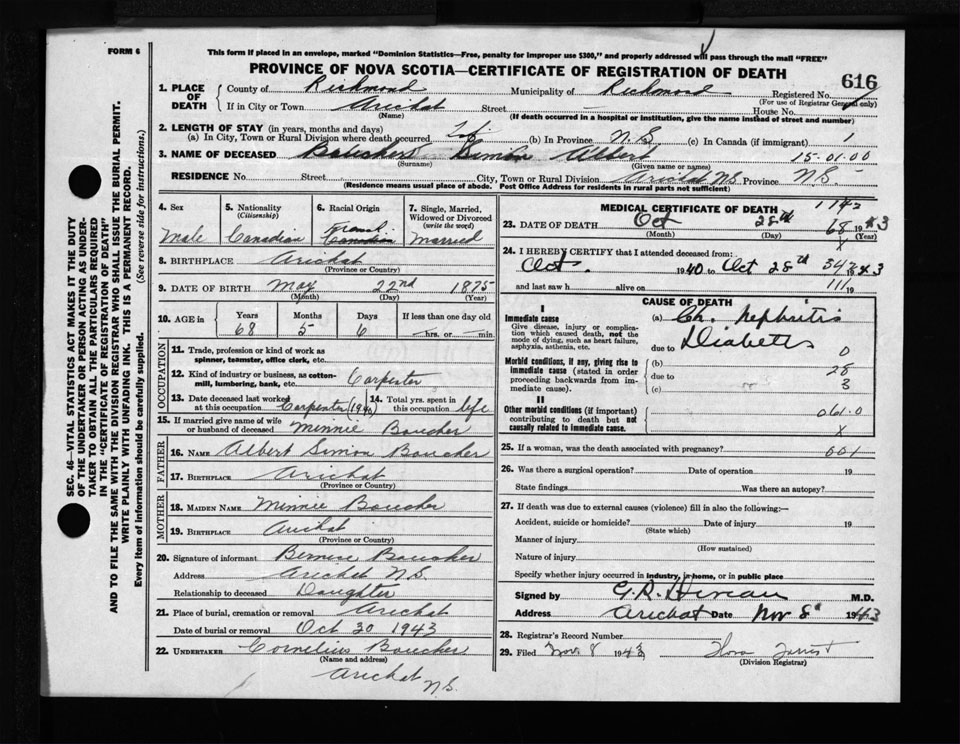 FORM 6
This form if placed in an envelope, marked "Dominion Statistics—Free, penalty for improper use $300," and properly addressed will pass through the mail "FREE"
PROVINCE OF NOVA SCOTIA—CERTIFICATE OF REGISTRATION OF DEATH
616
1. PLACE OF DEATH County of Richmond Municipality of Richmond Registered No.
(For use of Registrar General only)
If in City or Town Arichat Street House No.
(Name) (If death occurred in a hospital or institution, give the name instead of street and number)
2. LENGTH OF STAY (in years, months and days)
(a) In City, Town or Rural Division where death occurred (b) In Province N.S. (c) In Canada (if immigrant) 1
3. NAME OF DECEASED Simon Albert 15-01-00
(Surname) (Given name or names)
RESIDENCE No. Street City, Town or Rural Division Arichat N.S. Province N.S.
(Residence means usual place of abode. Post Office Address for residents in rural parts not sufficient)
4. Sex 5. Nationality 6. Racial Origin 7. Single, Married, Widowed or Divorced
(Citizenship) (write the word)
Male Canadian French Canadian Married
8. BIRTHPLACE Arichat
(Province or Country)
9. DATE OF BIRTH May 22nd 1875
(Month) (Day) (Year)
10. AGE in Years Months Days If less than one day old
68 5 6 hrs. or min.
OCCUPATION
11. Trade, profession or kind of work as spinner, teamster, office clerk, etc.
12. Kind of industry or business, as cotton-mill, lumbering, bank, etc. Carpester
13. Date deceased last worked at this occupation Carpenter (1940) 14. Total yrs. spent in this occupation life
15. If married give name of wife or husband of deceased Minnie Boucher
FATHER
16. NAME Albert Simon Boucher
17. BIRTHPLACE Arichat
(Province or Country)
MOTHER
18. MAIDEN NAME Minnie Boucher
19. BIRTHPLACE Arichat
(Province or Country)
20. Signature of informant Bernice Boucher
Address Arichat N.S.
Relationship to deceased Daughter
21. Place of burial, cremation or removal Arichat
Date of burial or removal Oct 30 1943
22. UNDERTAKER Cornelius Boucher
(Name and address)
Arichat N.S.
MEDICAL CERTIFICATE OF DEATH 1142
23. DATE OF DEATH Oct 28th 68 43
(Month) (Day) (Year)
X
24. I HEREBY CERTIFY that I attended deceased from:
Oct. 1940 to Oct 28th 1943
and last saw h alive on 111 19
CAUSE OF DEATH
I
Immediate cause (a) Ch. Nephritis
Give disease, injury or complication which caused death, not the mode of dying, such as heart failure, asphyxia, asthenia, etc.
due to Diabetes 0
Morbid conditions, if any, giving rise to immediate cause (stated in order proceeding backwards from immediate cause).
(b) 28
due to 3
(c)
II
Other morbid conditions (if important) contributing to death but not causally related to immediate cause.
061.0
X
25. If a woman, was the death associated with pregnancy? 601
26. Was there a surgical operation? Date of operation 19
State findings Was there an autopsy?
27. If death was due to external causes (violence) fill in also the following:—
Accident, suicide or homicide? Date of injury 19
(State which)
Manner of injury
(How sustained)
Nature of injury
Specify whether injury occurred in industry, in home, or in public place
Signed by M.D.
Address Arichat Date Nov 8th 1943
28. Registrar's Record Number
29. Filed Nov. 8 1943 Flora Forrest
(Division Registrar)
SEC. 46—VITAL STATISTICS ACT MAKES IT THE DUTY
OF THE UNDERTAKER OR PERSON ACTING AS UNDERTAKER TO OBTAIN ALL THE PARTICULARS REQUIRED
IN THE "CERTIFICATE OF REGISTRATION OF DEATH"
AND TO FILE THE SAME WITH THE DIVISION REGISTRAR WHO SHALL ISSUE THE BURIAL PERMIT.
WRITE PLAINLY WITH UNFADING INK. THIS IS A PERMANENT RECORD.
Every item of information should be carefully supplied. (See reverse side for instructions.)